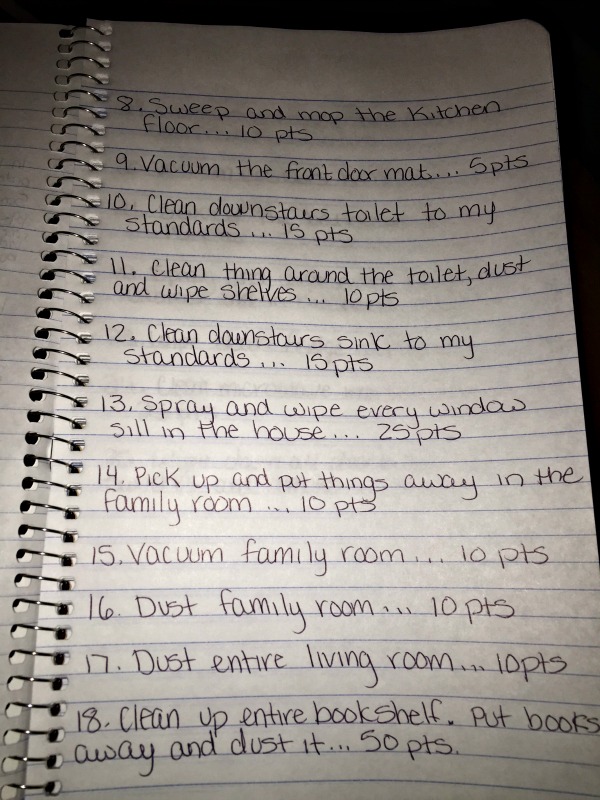 8. Sweep and mop the Kitchen
floor... 10 pts
9. Vacuum the front door mat... 5pts
10. Clean downstairs toilet to my
standards ... 15 pts
11. Clean thing around the toilet, dust
and wipe shelves ... 10pts
12. Clean downstairs sink to my
standards ... 15pts
13. Spray and wipe every window
sill in the house... 25pts
14. Pick up and put things away in the
family room ... 10 pts
15. Vacuum family room ... 10 pts
16. Dust family room ... 10 pts
17. Dust entire living room... 10pts
18. Clean up entire bookshelf. Put books
away and dust it... 50 pts.